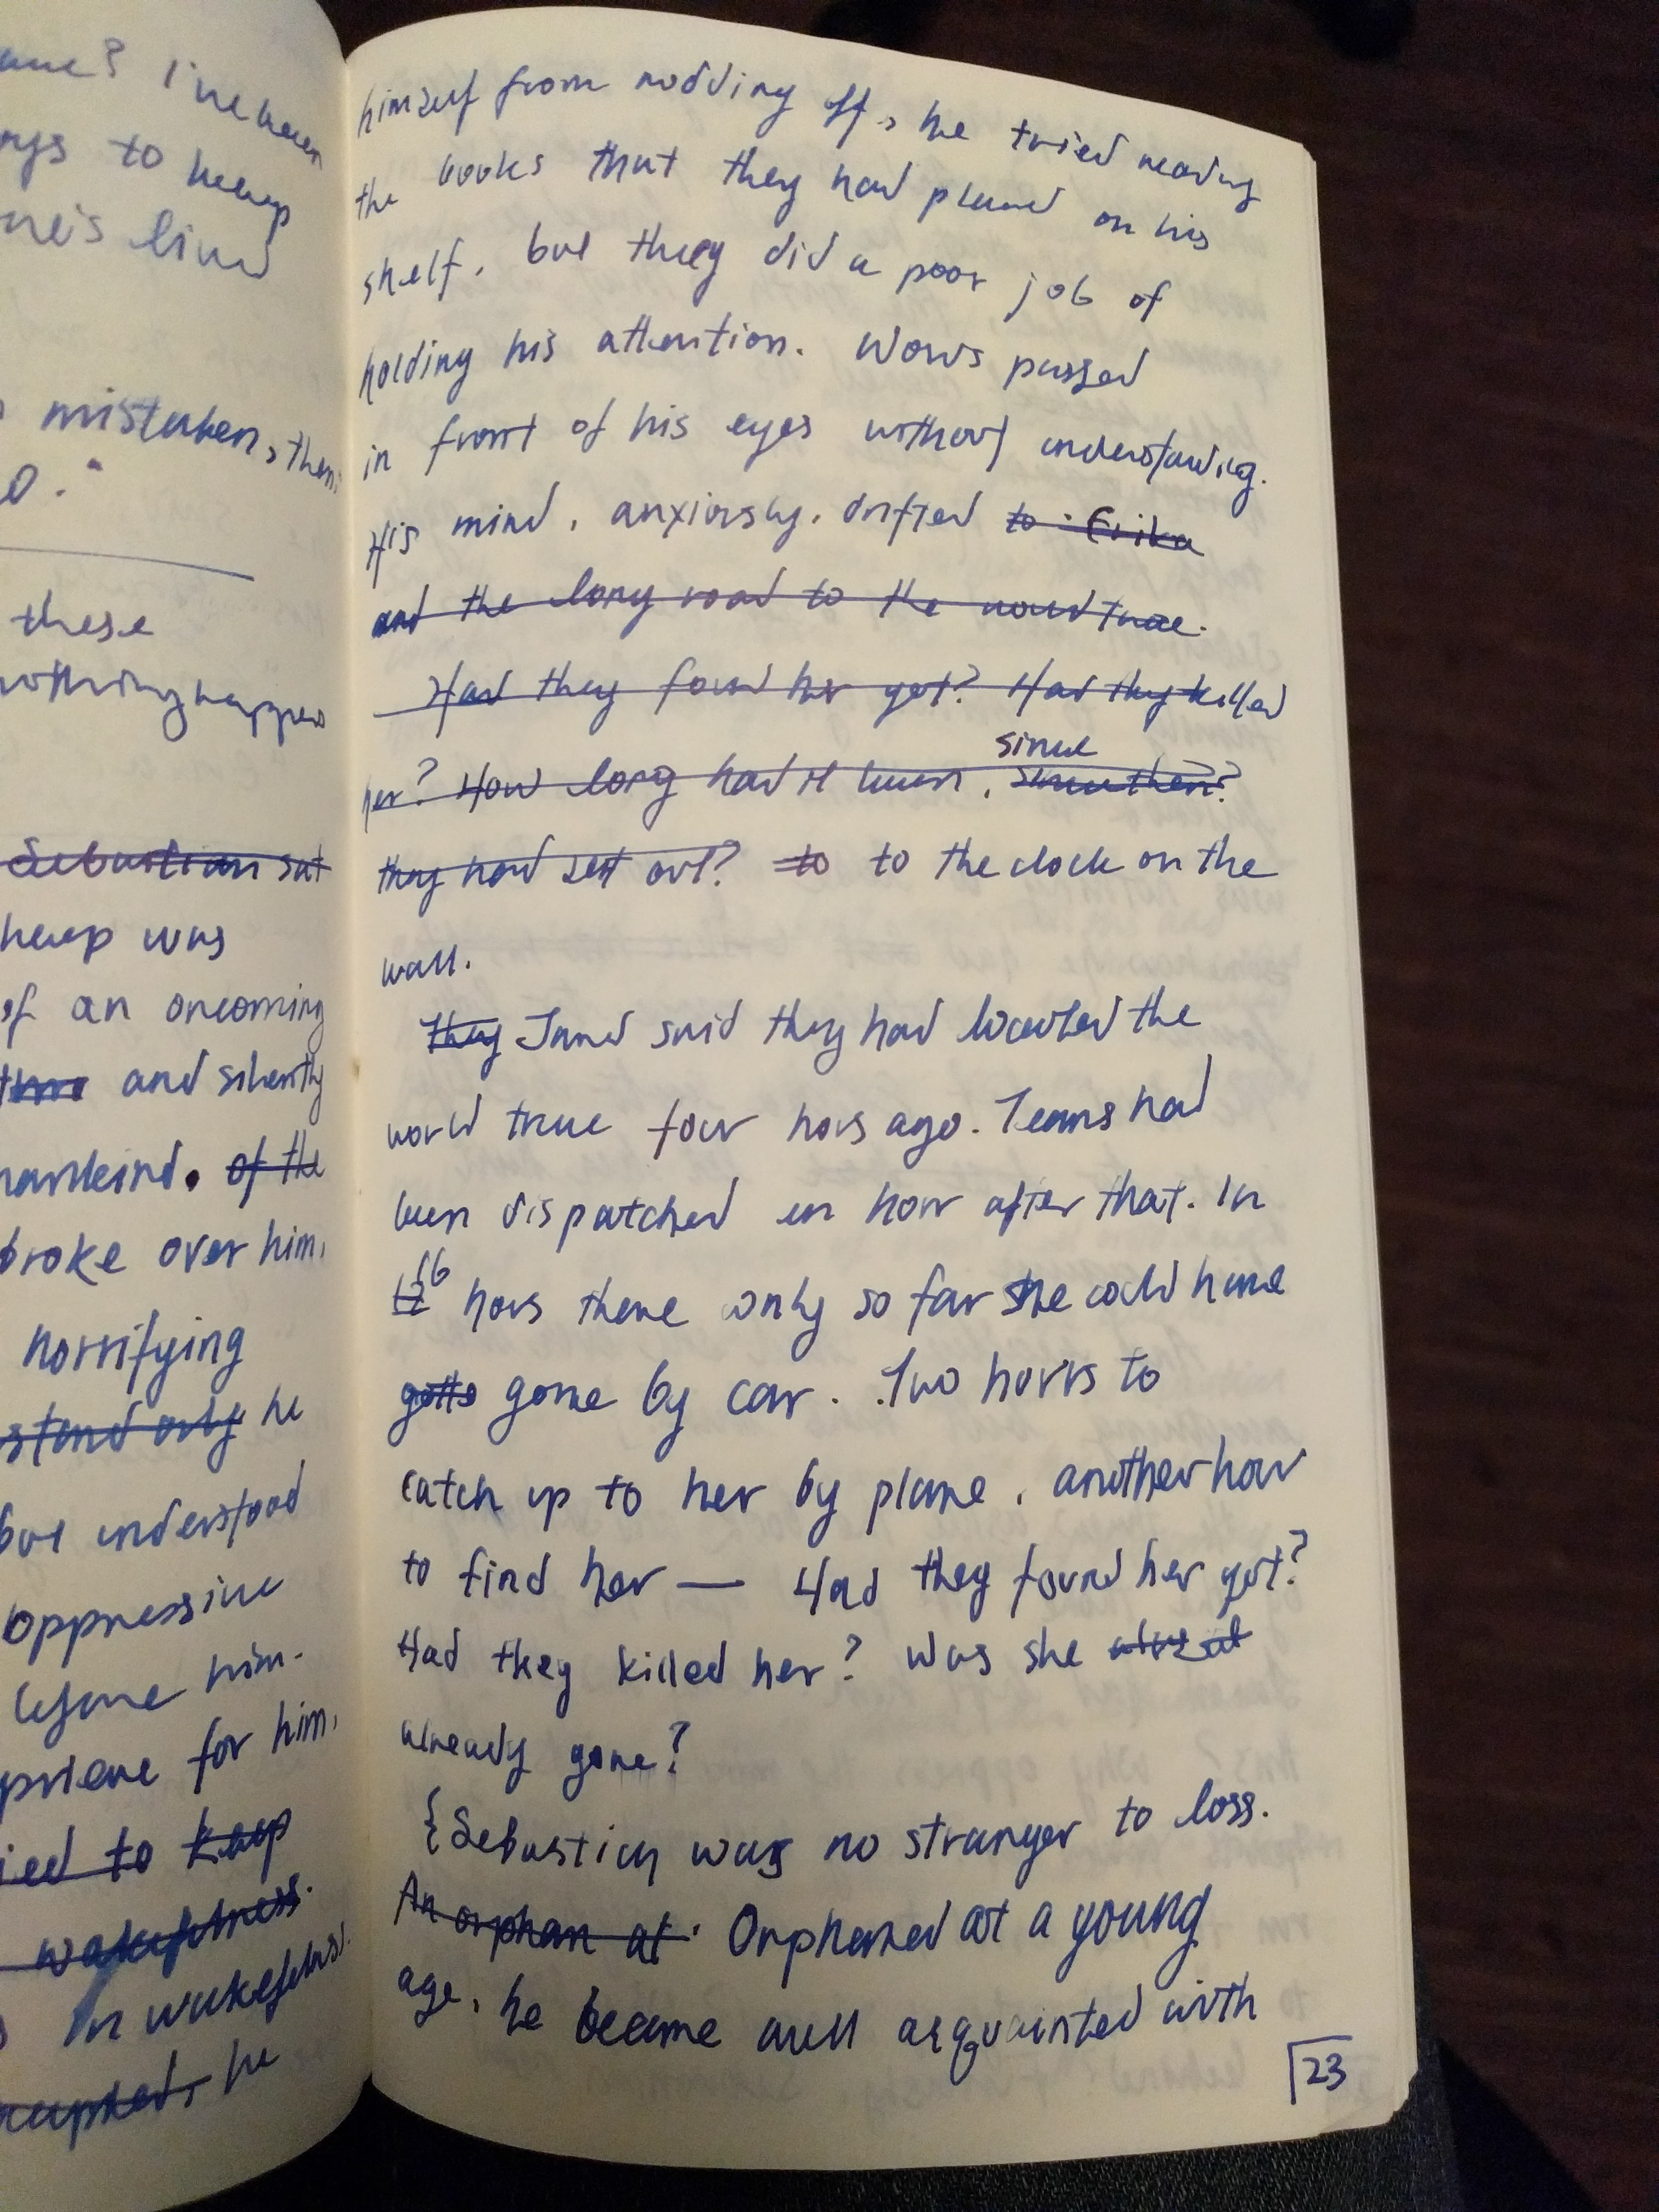 ame? I've been
ays to keep
ne's lived
mistaken, then
o."
these
nothing happen
Sebastian sat
heap was
of an oncoming
time and silently
mankind. of the
broke over him,
horrifying
stand only he
but understood
oppressive
before him.
prieve for him,
ied to keep
wakefulness.
in wakefulness.
he
himself from nodding off, he tried reading
the books that they had placed on his
shelf, but they did a poor job of
holding his attention. Words passed
in front of his eyes without understanding.
His mind, anxiously, drifted to Erika
and the long road to the world tree.
Had they found her yet? Had they killed
since
her? How long had it been, since then?
they had set out? to to the clock on the
wall.
They Jand said they had located the
world tree four hours ago. Teams had
been dispatched an hour after that. In
12 16 hours there only so far she could have
gotte gone by car. Two hours to
catch up to her by plane, another hour
to find her — Had they found her yet?
Had they killed her? Was she
already gone?
{Sebastian was no stranger to loss.
An orphan at. Orphaned at a young
age, he became well acquainted with
23